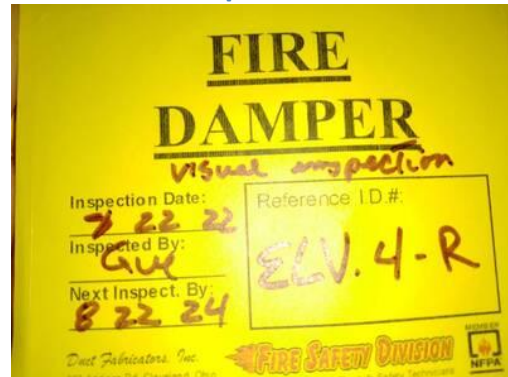 FIRE
DAMPER
visual inspection
Inspection Date:
7 22 22
Inspected By:
Guy
Next Inspect. By:
8 22 24
Reference I.D.#:
ELV. 4-R
Duct Fabricators, Inc.
FIRE SAFETY DIVISION
MEMBER
NFPA